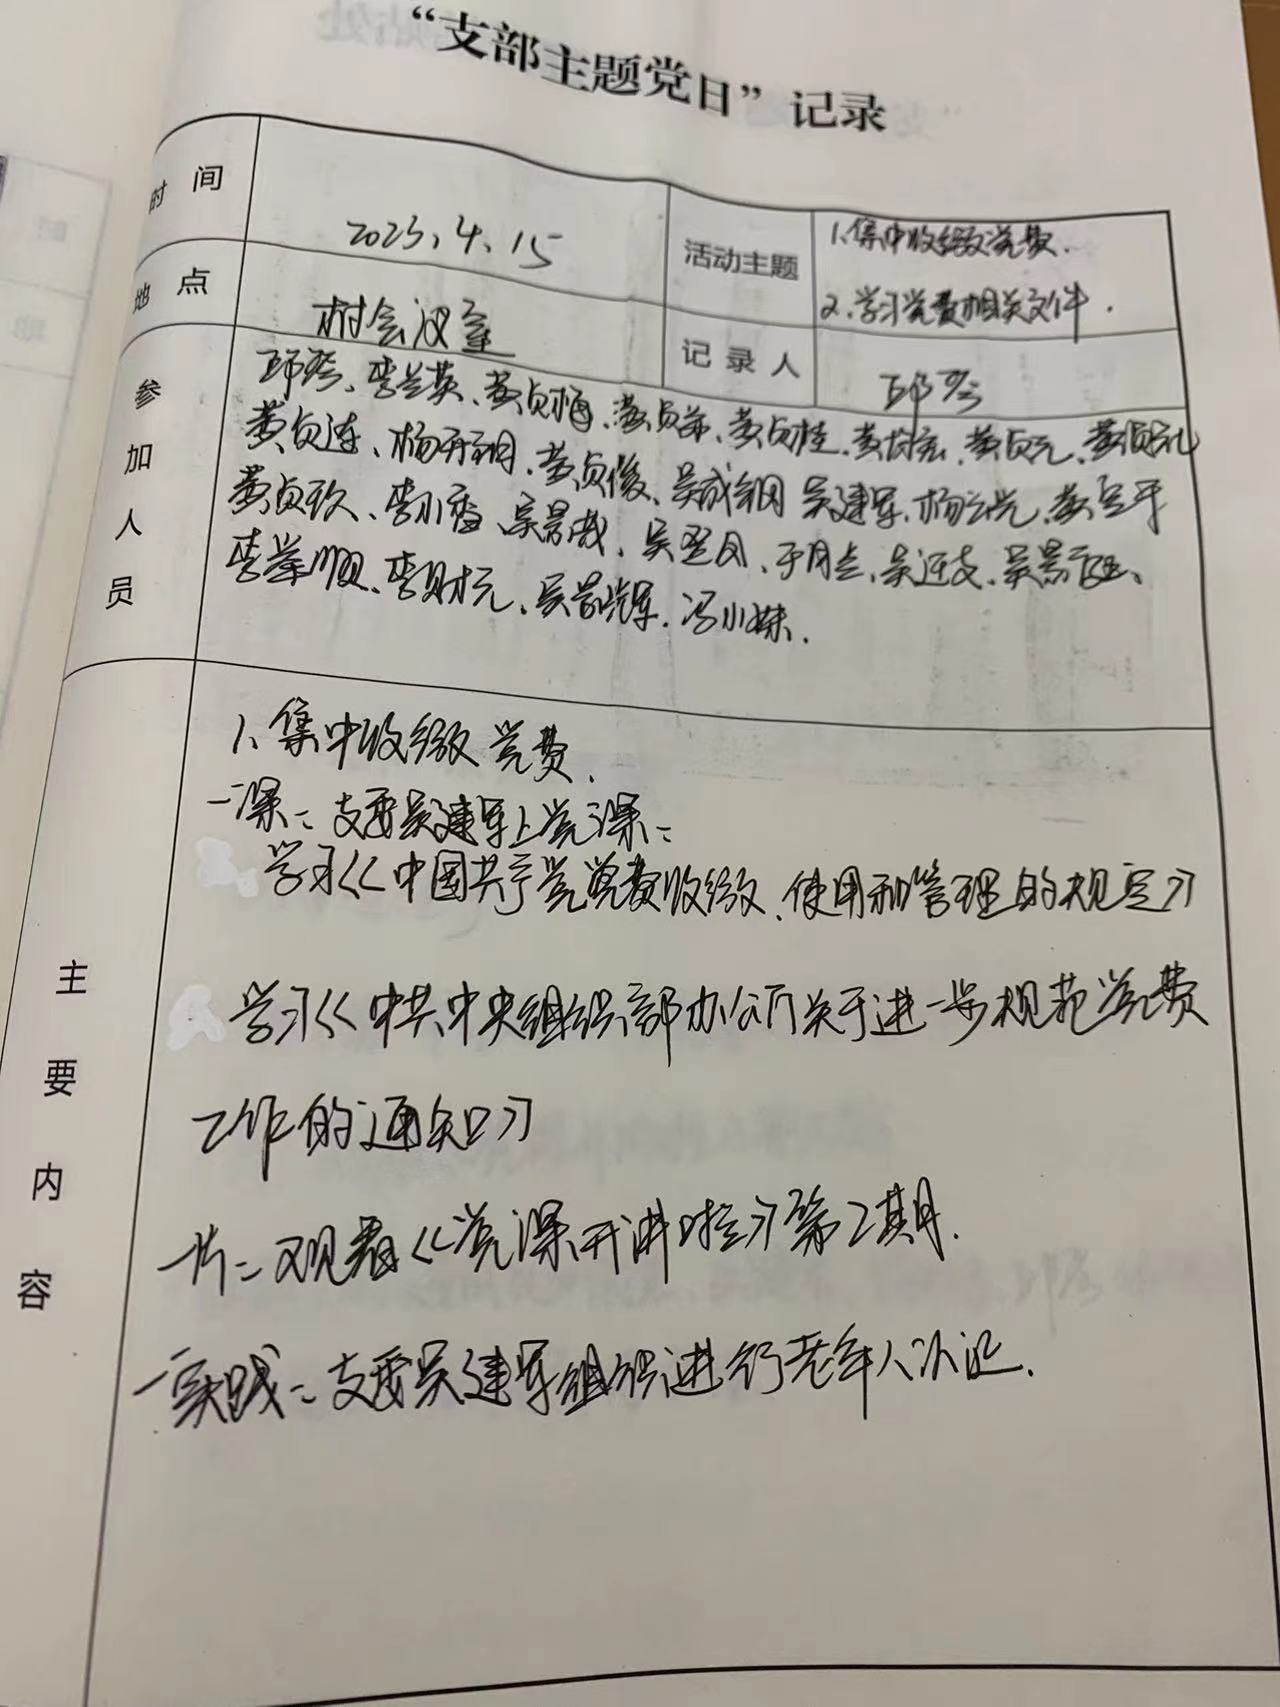 “支部主题党日”记录
时间 2023、4、15 活动主题 1、集中收缴党费.
2、学习党费相关文件.
地点 村会议室 记录人 邱
参加人员 邱 、李兰英、黄贞梅、黄贞 、黄贞桂、黄 、黄贞元、黄贞礼
黄贞连、杨开钢、黄贞俊、吴成钢 吴建军、杨 、黄 平
黄贞玖、李小香、吴景成、吴 凤、于月兰、吴连支、吴景 、
李举顺、李财元、吴景辉、冯小妹.
主要内容
1、集中收缴党费.
一课:支委吴建军上党课:
学习《中国共产党党费收缴、使用和管理的规定》
学习《中共中央组织部办公厅关于进一步规范党费
工作的通知》
一片:观看《党课开讲啦》第2期.
一实践:支委吴建军组织进行老年人认证.